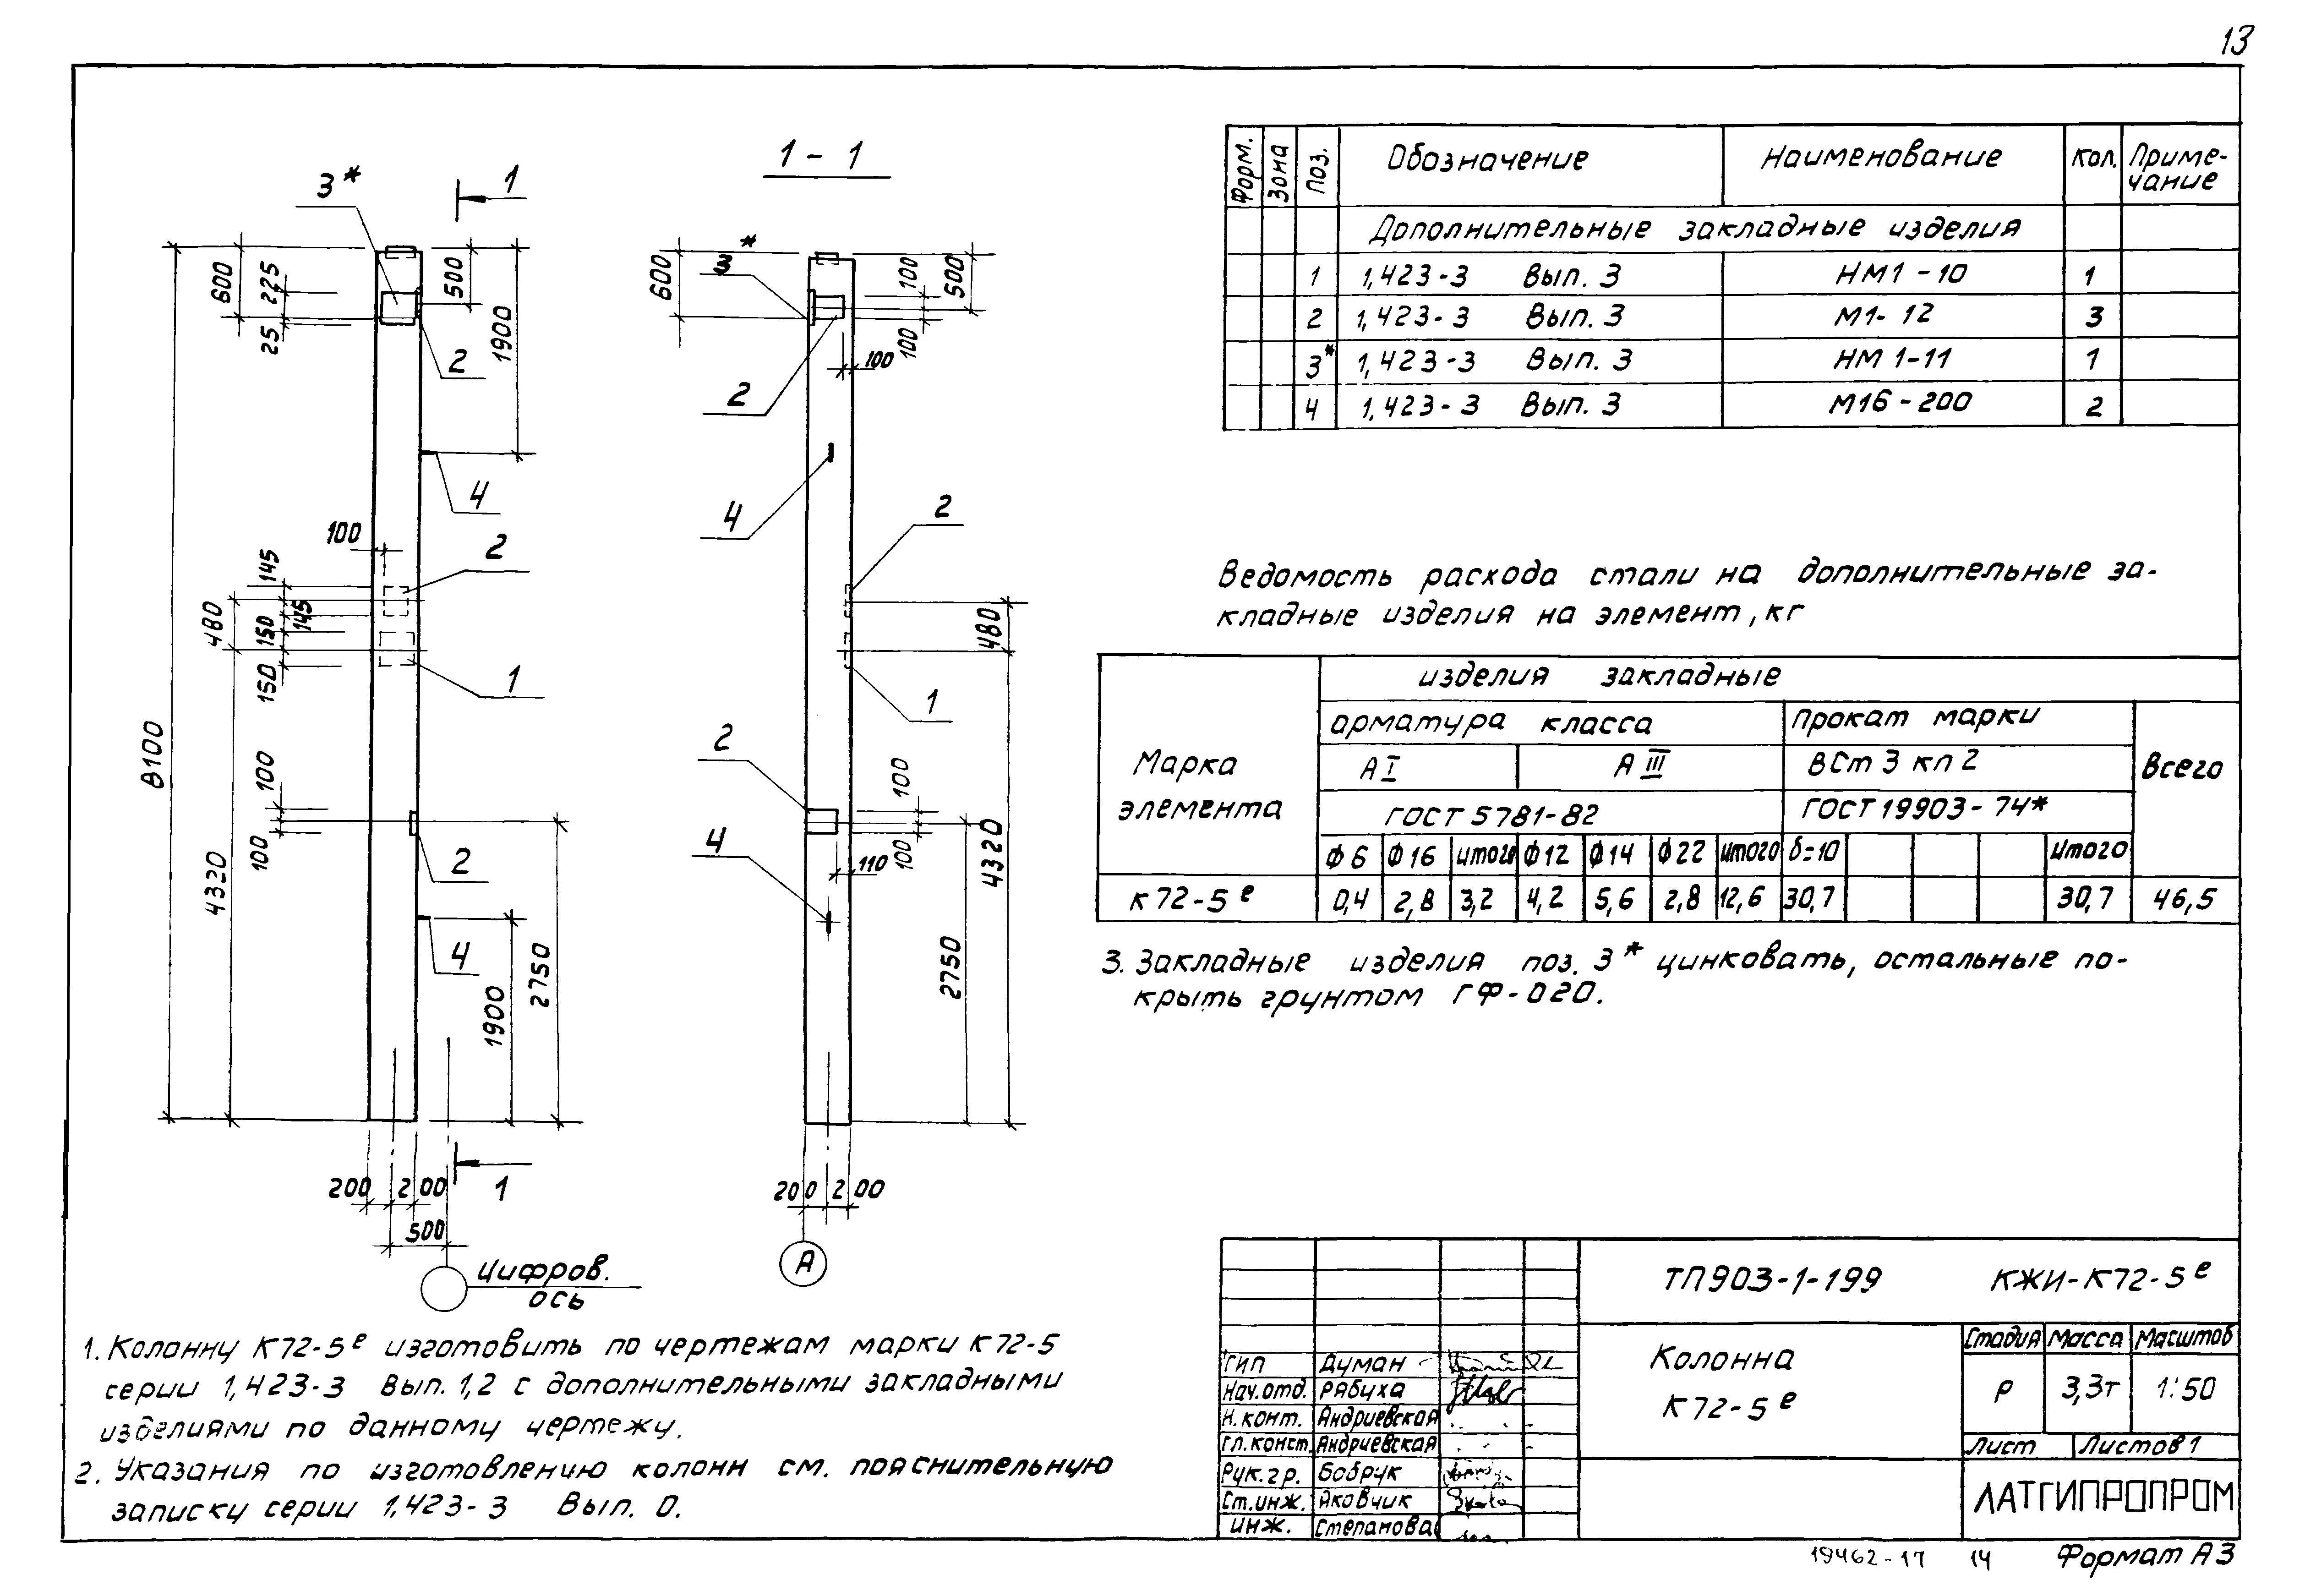 13
1 - 1
3* 1
600 225 25 500 1900
2
4
100
2
145 145 480 150 150
1
8100
100 100
4320
2
4
1900 2750
1
200 200
500
Цифров.
ось
* 3
600 100 500 100 100
2
4
2
480
1
2
100 100
110
4
4320
2750
200 200
А
Форм. Зона Поз. Обозначение Наименование Кол. Приме-
чание
Дополнительные закладные изделия
1 1,423-3 Вып. 3 НМ1-10 1
2 1,423-3 Вып. 3 М1-12 3
3* 1,423-3 Вып. 3 НМ1-11 1
4 1,423-3 Вып. 3 М16-200 2
Ведомость расхода стали на дополнительные за-
кладные изделия на элемент, кг
Марка
элемента
изделия закладные
арматура класса Прокат марки
АI АIII ВСт 3 кп 2 Всего
ГОСТ 5781-82 ГОСТ 19903-74*
ф6 ф16 итого ф12 ф14 ф22 итого δ=10 итого
К72-5е 0,4 2,8 3,2 4,2 5,6 2,8 12,6 30,7 30,7 46,5
3. Закладные изделия поз. 3* цинковать, остальные по-
крыть грунтом ГФ-020.
1. Колонну К72-5е изготовить по чертежам марки К72-5
серии 1,423-3 Вып. 1,2 с дополнительными закладными
изделиями по данному чертежу.
2. Указания по изготовлению колонн см. пояснительную
записку серии 1,423-3 Вып. 0.
ТП903-1-199 КЖИ-К72-5е
Колонна
К72-5е
Стадия Масса Масштаб
Р 3,3т 1:50
Лист Листов 1
ЛАТГИПРОПРОМ
ГИП Думан
Нач.отд. Рябуха
Н.конт. Андриевская
Гл.конст. Андриевская
Рук.гр. Бобрук
Ст.инж. Яковчик
Инж. Степанова
19462-17 14 Формат А3